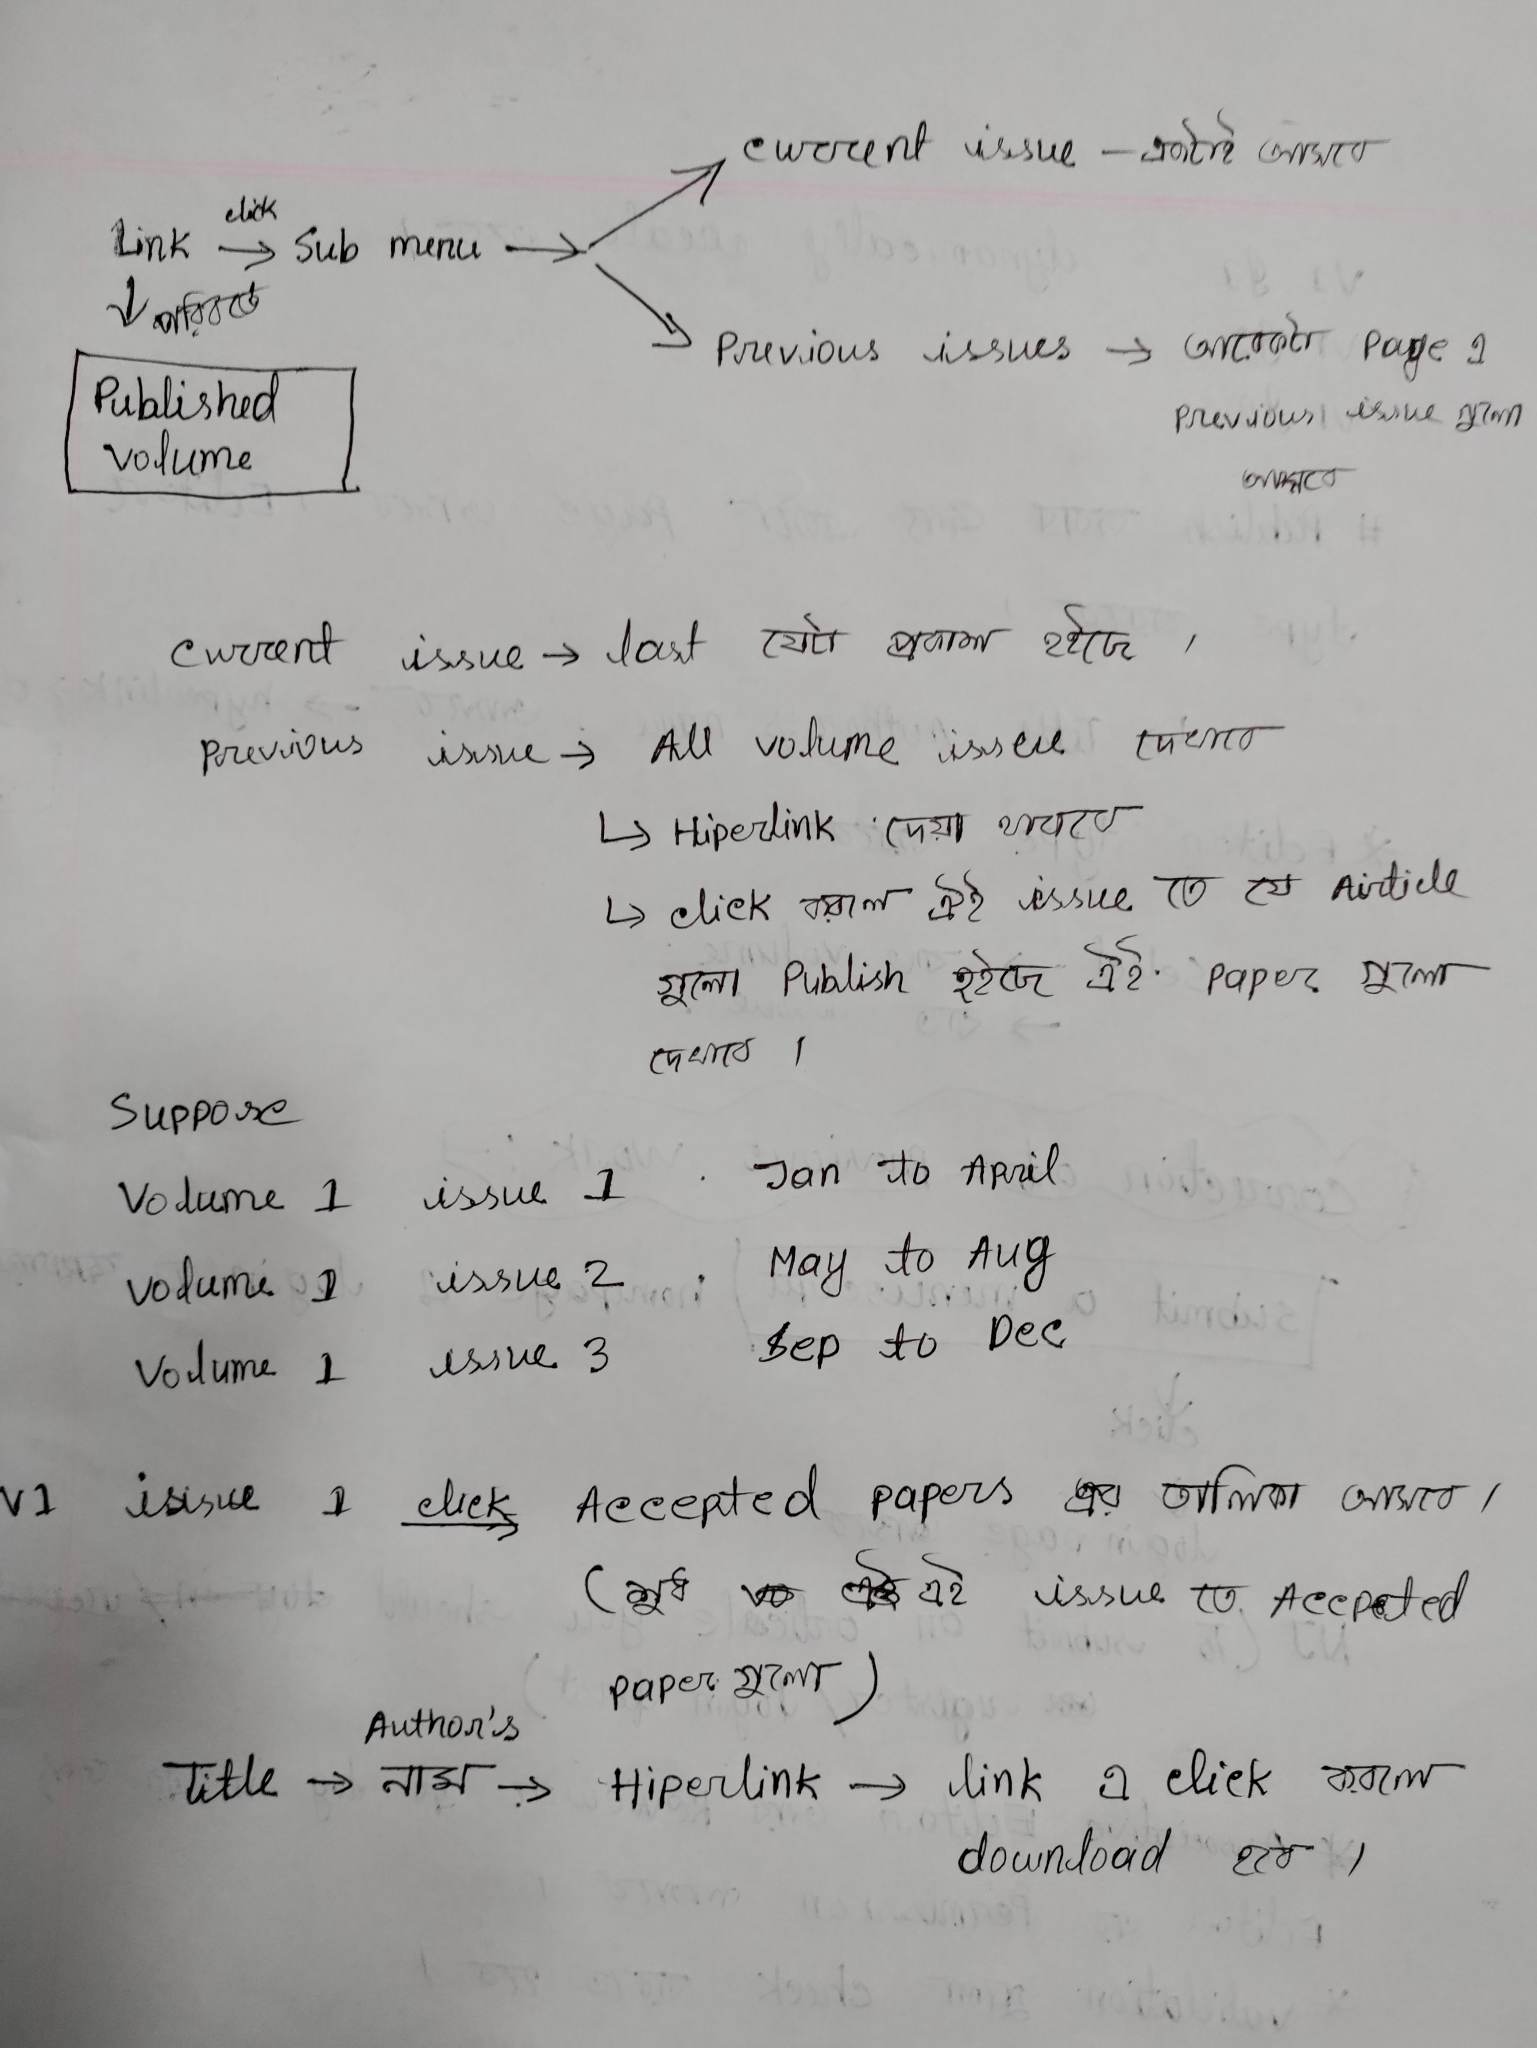 current issue – এটাই আসবে
Link click → Sub menu →
↓ পরিবর্তে
Previous issues → আরেকটা page এ
Previous issue গুলো
আসবে
Published
volume
current issue → last যেটা প্রকাশ হইছে ।
Previous issue → All volume issue দেখাবে
↳ Hiperlink দেয়া থাকবে
↳ click করলে ঐই issue তে যে Article
গুলো Publish হইছে ঐই paper গুলো
দেখাবে ।
Suppose
Volume 1 issue 1 . Jan to April
volume 1 issue 2 . May to Aug
Volume 1 issue 3 Sep to Dec
V1 issue 1 click → Accepted papers এর তালিকা আসবে ।
(শুধু এই issue তে Accepted
paper গুলো)
Author's
Title → নাম → Hiperlink → link এ click করলে
download হবে ।